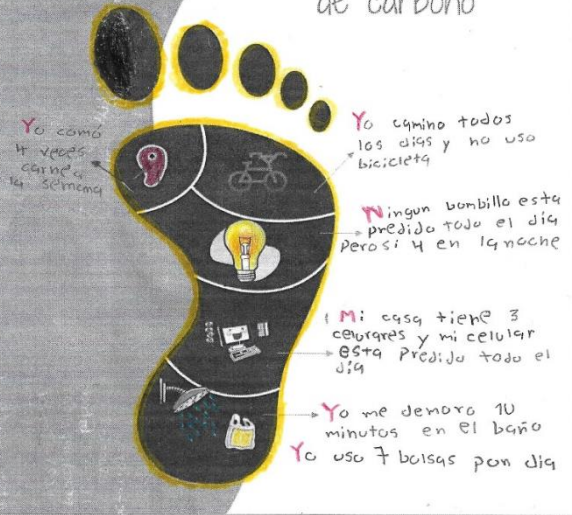 de carbono
Yo como
4 veces
carne a
la semana
Yo camino todos
los dias y no uso
bicicleta
Ningun bombillo esta
predido todo el dia
pero si 4 en la noche
Mi casa tiene 3
celurares y mi celular
esta predido todo el
día
Yo me demoro 10
minutos en el baño
Yo uso 7 bolsas por dia